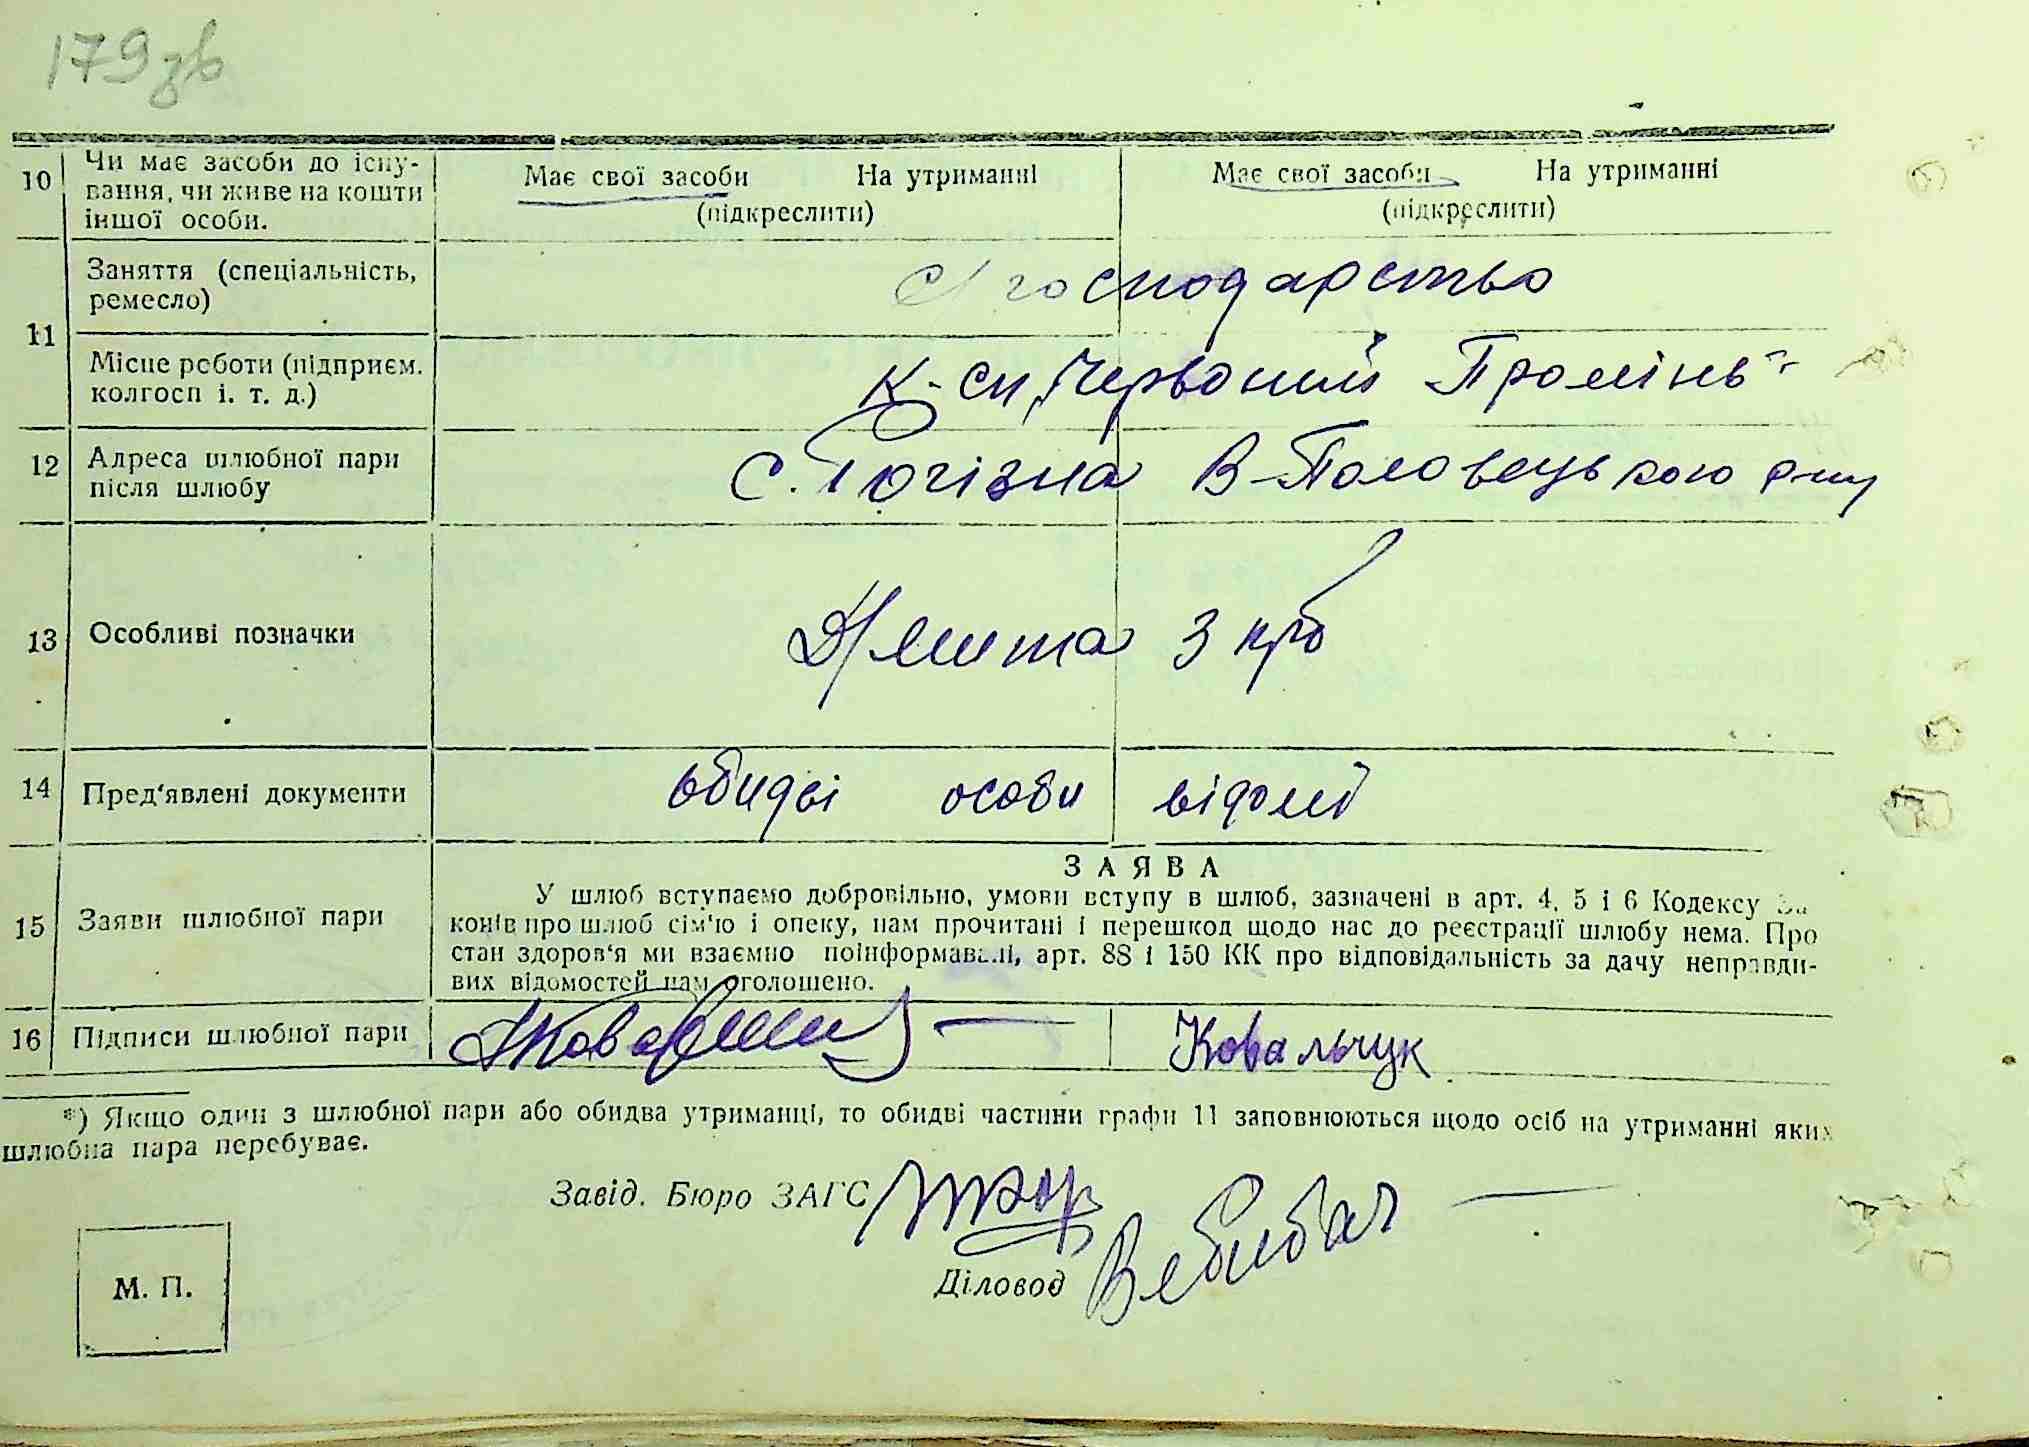 179зв
10 Чи має засоби до існу-
вання, чи живе на кошти
іншої особи.
Має свої засоби На утриманні
(підкреслити)
Має свої засоби На утриманні
(підкреслити)
11 Заняття (спеціальність,
ремесло)
с/господарство
Місце роботи (підприєм.
колгосп і. т. д.)
к-сп „Червоний Промінь"
12 Адреса шлюбної пари
після шлюбу
с. Рогізна В-Половецького р-ну
13 Особливі позначки
3 крб
14 Пред'явлені документи
обидві особи відомі
15 Заяви шлюбної пари
ЗАЯВА
У шлюб вступаємо добровільно, умови вступу в шлюб, зазначені в арт. 4, 5 і 6 Кодексу За
конів про шлюб сім'ю і опеку, нам прочитані і перешкод щодо нас до реєстрації шлюбу нема. Про
стан здоров'я ми взаємно поінформавалі, арт. 88 і 150 КК про відповідальність за дачу неправди-
вих відомостей нам оголошено.
16 Підписи шлюбної пари
Ковальчук
*) Якщо один з шлюбної пари або обидва утриманці, то обидві частини графи 11 заповнюються щодо осіб на утриманні яких
шлюбна пара перебуває.
Завід. Бюро ЗАГС
Діловод
М. П.